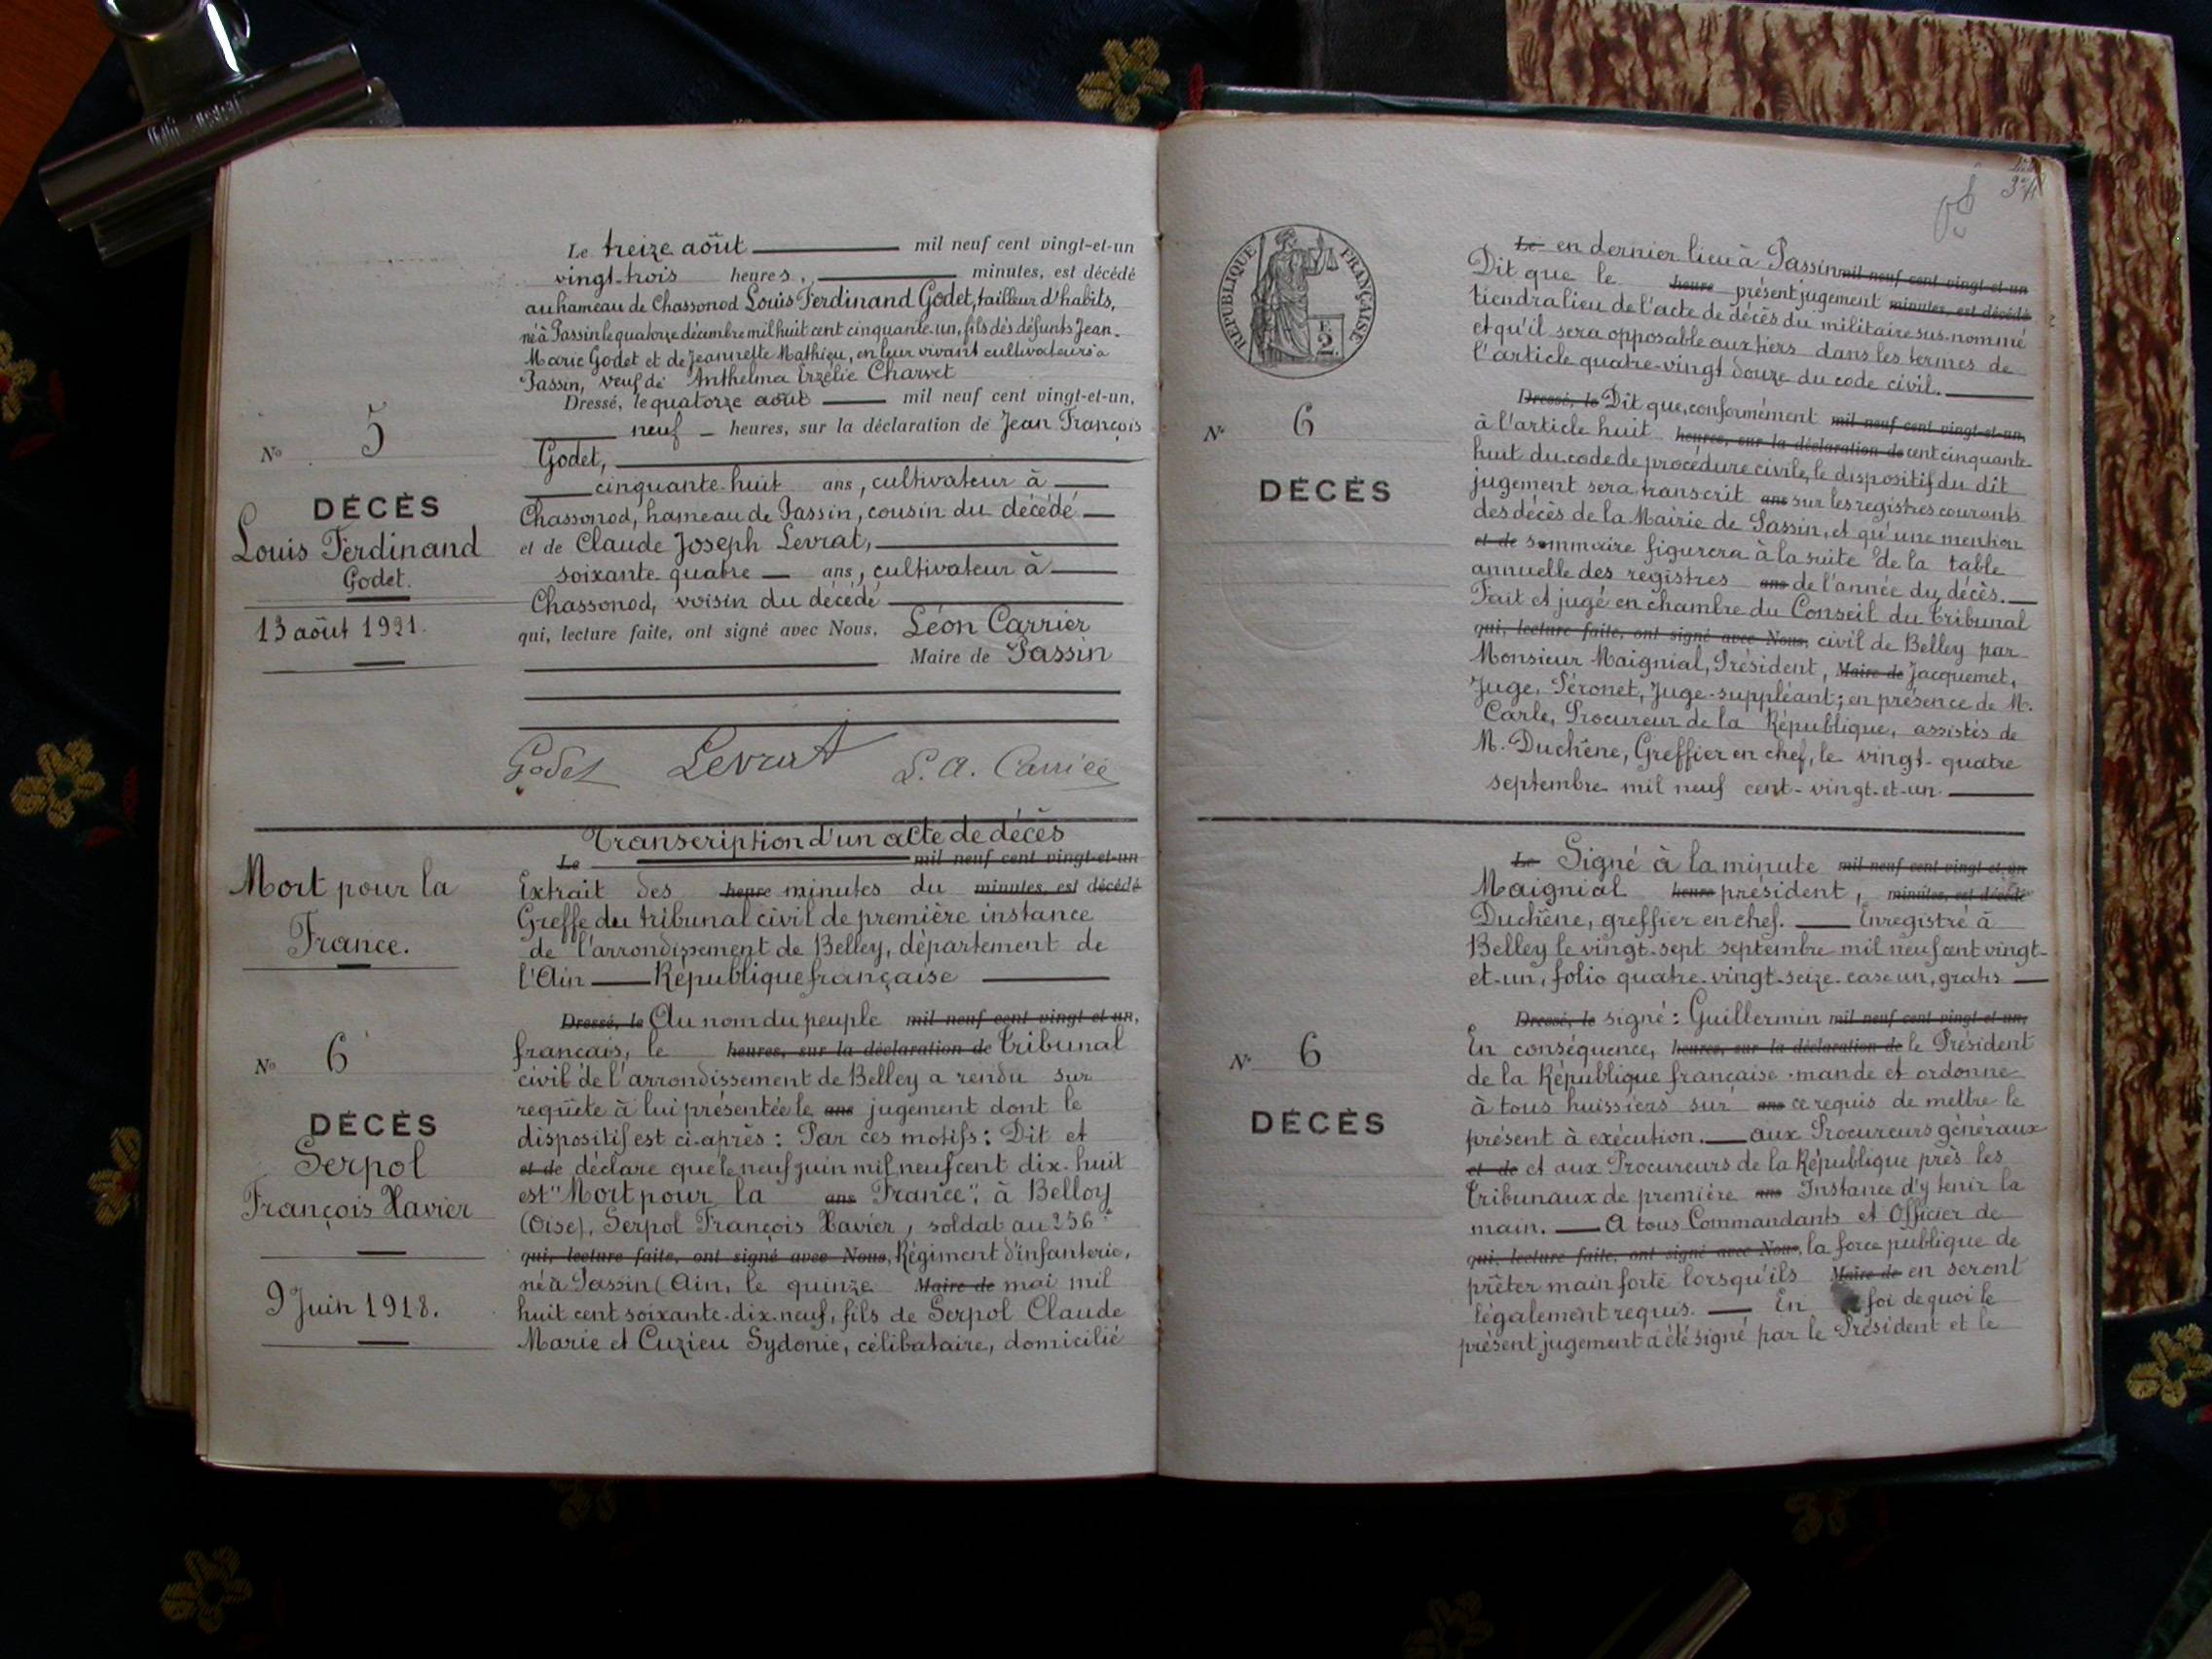 Le treize août mil neuf cent vingt-et-un
vingt-trois heures, minutes, est décédé
au hameau de Chassonod Louis Ferdinand Godet, tailleur d'habits,
né à Passin le quatorze décembre mil huit cent cinquante-un, fils des défunts Jean-
Marie Godet et de Jeannette Mathieu, en leur vivant cultivateurs à
Passin, veuf de Anthelma Erzélie Charvet
Dressé, le quatorze août mil neuf cent vingt-et-un,
neuf heures, sur la déclaration de Jean François
Godet,
cinquante-huit ans, cultivateur à
Chassonod, hameau de Passin, cousin du décédé
et de Claude Joseph Levrat,
soixante quatre ans, cultivateur à
Chassonod, voisin du décédé
qui, lecture faite, ont signé avec Nous, Léon Carrier
Maire de Passin
Godet Levrat L. A. Carrier
No 5
DÉCÈS
Louis Ferdinand
Godet.
13 août 1921.
Transcription d'un acte de décès
Le mil neuf cent vingt-et-un
Extrait des heure minutes du minutes, est décédé
Greffe du tribunal civil de première instance
de l'arrondissement de Belley, département de
l'Ain République française
Dressé, le Au nom du peuple mil neuf cent vingt-et-un,
français, le heures, sur la déclaration de Tribunal
civil de l'arrondissement de Belley a rendu sur
requête à lui présentée le ans jugement dont le
dispositif est ci-après : Par ces motifs : Dit et
et de déclare que le neuf juin mil neuf cent dix-huit
est "Mort pour la ans France", à Belloy
(Oise), Serpol François Xavier, soldat au 256e
qui, lecture faite, ont signé avec Nous, Régiment d'infanterie,
né à Passin (Ain, le quinze Maire de mai mil
huit cent soixante-dix-neuf, fils de Serpol Claude
Marie et Cuzieu Sydonie, célibataire, domicilié
Mort pour la
France.
No 6
DÉCÈS
Serpol
François Xavier
9 Juin 1918.
RÉPUBLIQUE FRANÇAISE
2
Le en dernier lieu à Passin mil neuf cent vingt-et-un
Dit que le heure présent jugement minutes, est décédé
tiendra lieu de l'acte de décès du militaire sus-nommé
et qu'il sera opposable aux tiers dans les termes de
l'article quatre-vingt douze du code civil.
Dressé, le Dit que, conformément mil neuf cent vingt-et-un,
à l'article huit heures, sur la déclaration de cent cinquante-
huit du code de procédure civile, le dispositif du dit
jugement sera transcrit ans sur les registres courants
des décès de la Mairie de Passin, et qu'une mention
et de sommaire figurera à la suite de la table
annuelle des registres ans de l'année du décès.
Fait et jugé en chambre du Conseil du tribunal
qui, lecture faite, ont signé avec Nous, civil de Belley par
Monsieur Maignial, Président, Maire de Jacquemet,
Juge, Péronet, Juge-suppléant ; en présence de M.
Carle, Procureur de la République, assistés de
M. Duchêne, Greffier en chef, le vingt-quatre
septembre mil neuf cent-vingt-et-un
No 6
DÉCÈS
Le Signé à la minute mil neuf cent vingt-et-un
Maignial heure président, minutes, est décédé
Duchêne, greffier en chef. Enregistré à
Belley le vingt-sept septembre mil neuf cent vingt-
et-un, folio quatre-vingt-seize case un, gratis
Dressé, le signé : Guillermin mil neuf cent vingt-et-un,
En conséquence, heures, sur la déclaration de le Président
de la République française mande et ordonne
à tous huissiers sur ans ce requis de mettre le
présent à exécution. aux Procureurs généraux
et de et aux Procureurs de la République près les
Tribunaux de première ans Instance d'y tenir la
main. A tous Commandants et Officier de
qui, lecture faite, ont signé avec Nous, la force publique de
prêter main forte lorsqu'ils Maire de en seront
légalement requis. En foi de quoi le
présent jugement a été signé par le Président et le
No 6
DÉCÈS